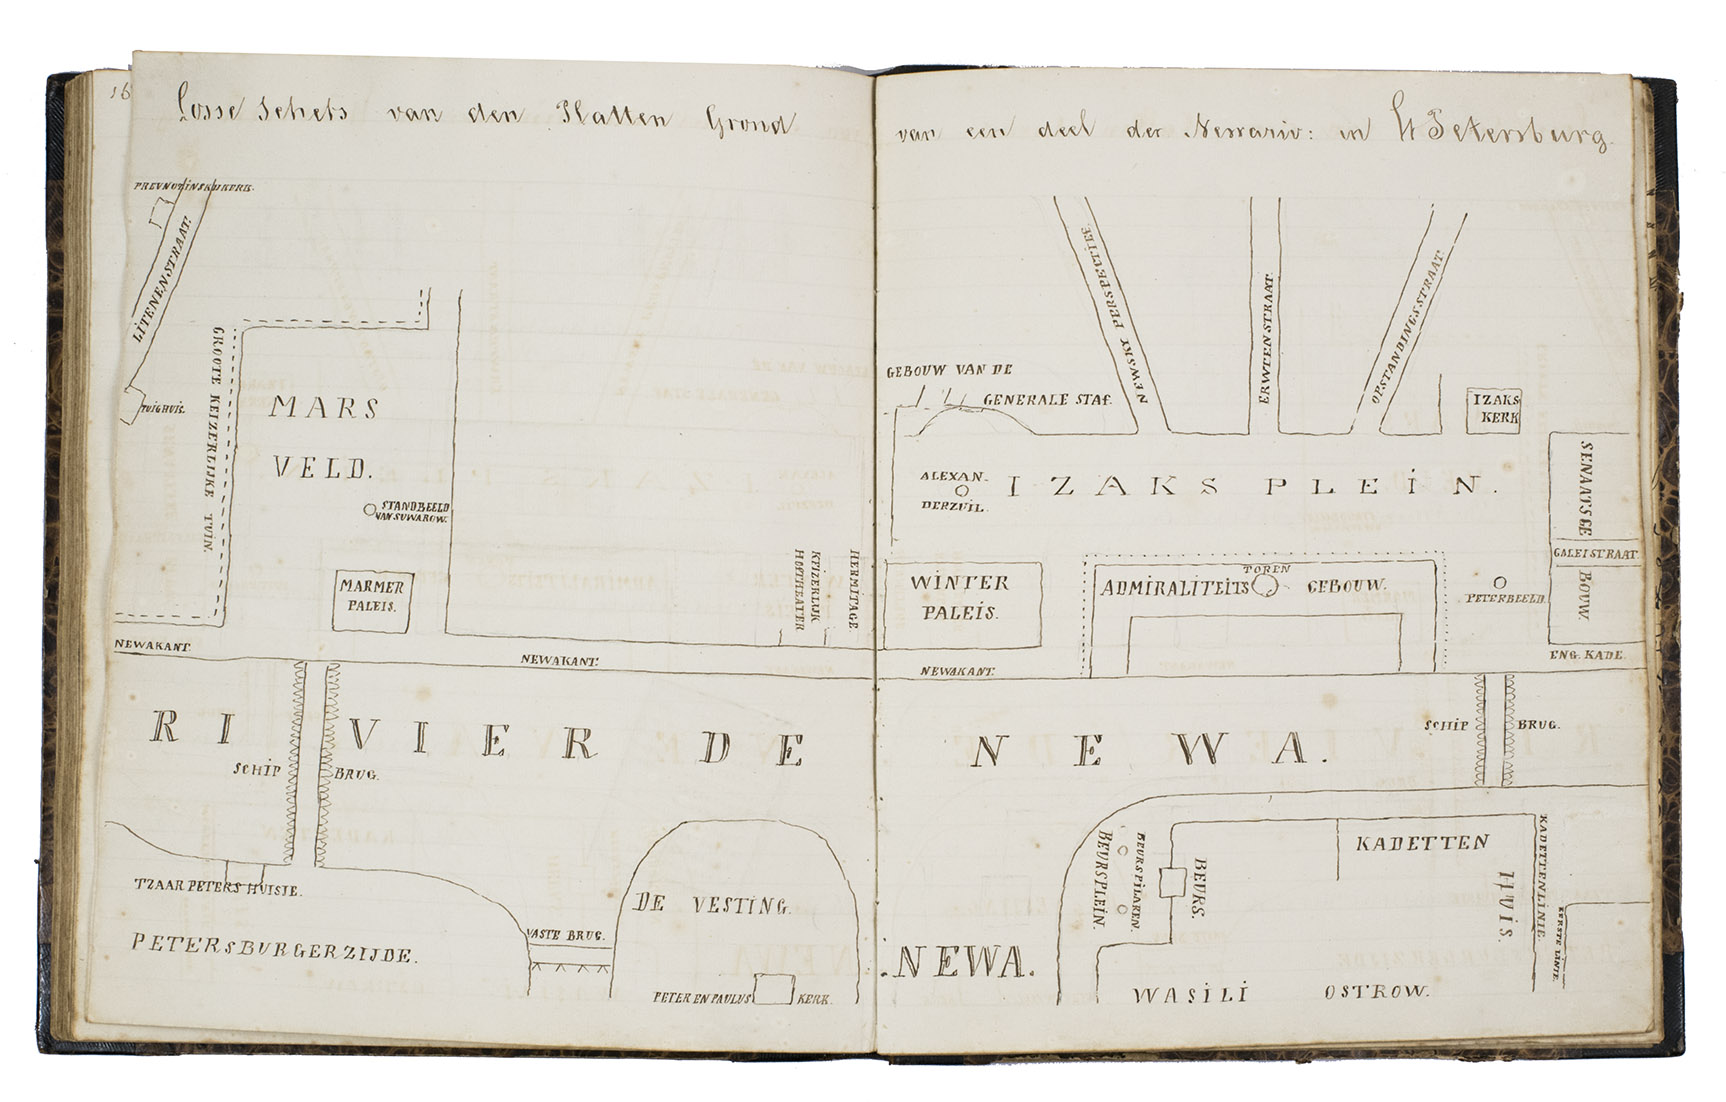 16
Losse Schets van den Platten Grond
van een deel der Newariv: in St Petersburg.
LITENENSTRAAT.
TUIGHUIS.
GROOTE KEIZERLIJKE TUIN.
MARS
VELD.
STANDBEELD
VAN SUWAROW.
MARMER
PALEIS.
KEIZERLIJK
HOFTHEATER
HERMITAGE.
NEWAKANT.
NEWAKANT.
GEBOUW VAN DE
GENERALE STAF.
NEWSKY PERSPECTIEF.
ERWTENSTRAAT.
OPSTANDINGSSTRAAT.
IZAKS
KERK
ALEXAN-
DERZUIL.
IZAKS PLEIN.
SENAATSGE
GALEISTRAAT.
BOUW.
WINTER
PALEIS.
TOREN
ADMIRALITEITS GEBOUW.
PETERBEELD.
NEWAKANT.
ENG. KADE.
RIVIER DE
NEWA.
SCHIP BRUG.
SCHIP BRUG.
TZAAR PETERS HUISJE.
PETERSBURGERZIJDE.
DE VESTING.
VASTE BRUG.
PETER EN PAULUS KERK.
NEWA.
BEURSPLEIN.
BEURSPILAREN.
BEURS.
KADETTEN
HUIS.
KADETTENLINIE.
EERSTE LINIE.
WASILI OSTROW.